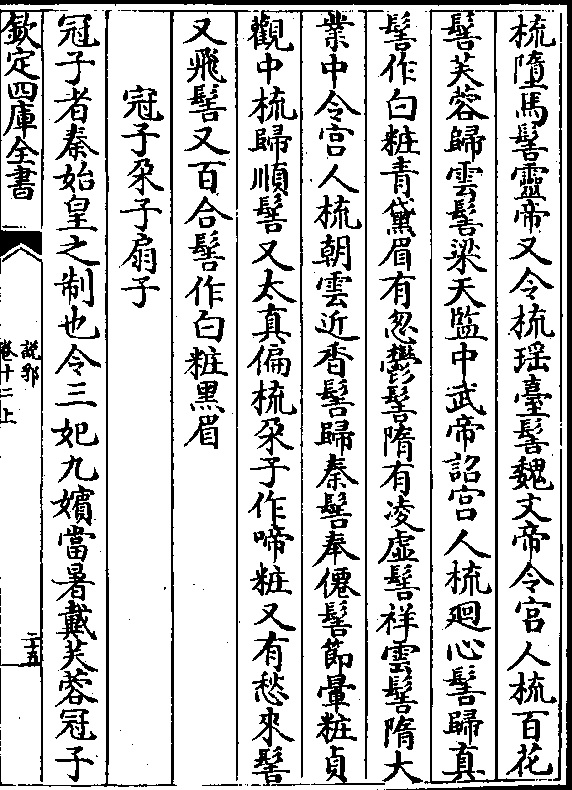 梳墮馬髻靈帝又令梳瑶臺髻魏文帝令宫人梳百花
髻芙蓉歸雲髻梁天監中武帝詔宫人梳廻心髻歸真
髻作白粧青黛眉有忽鬱髻隋有凌虚髻祥雲髻隋大
業中令宫人梳朝雲近香髻歸秦髻奉僊髻節暈粧貞
觀中梳歸順髻又太真偏梳朶子作啼粧又有愁來髻
又飛髻又百合髻作白粧黒眉
冠子朶子扇子
冠子者秦始皇之制也令三妃九嬪當暑戴芙蓉冠子
欽定四庫全書
説郛
卷十二上
二十五